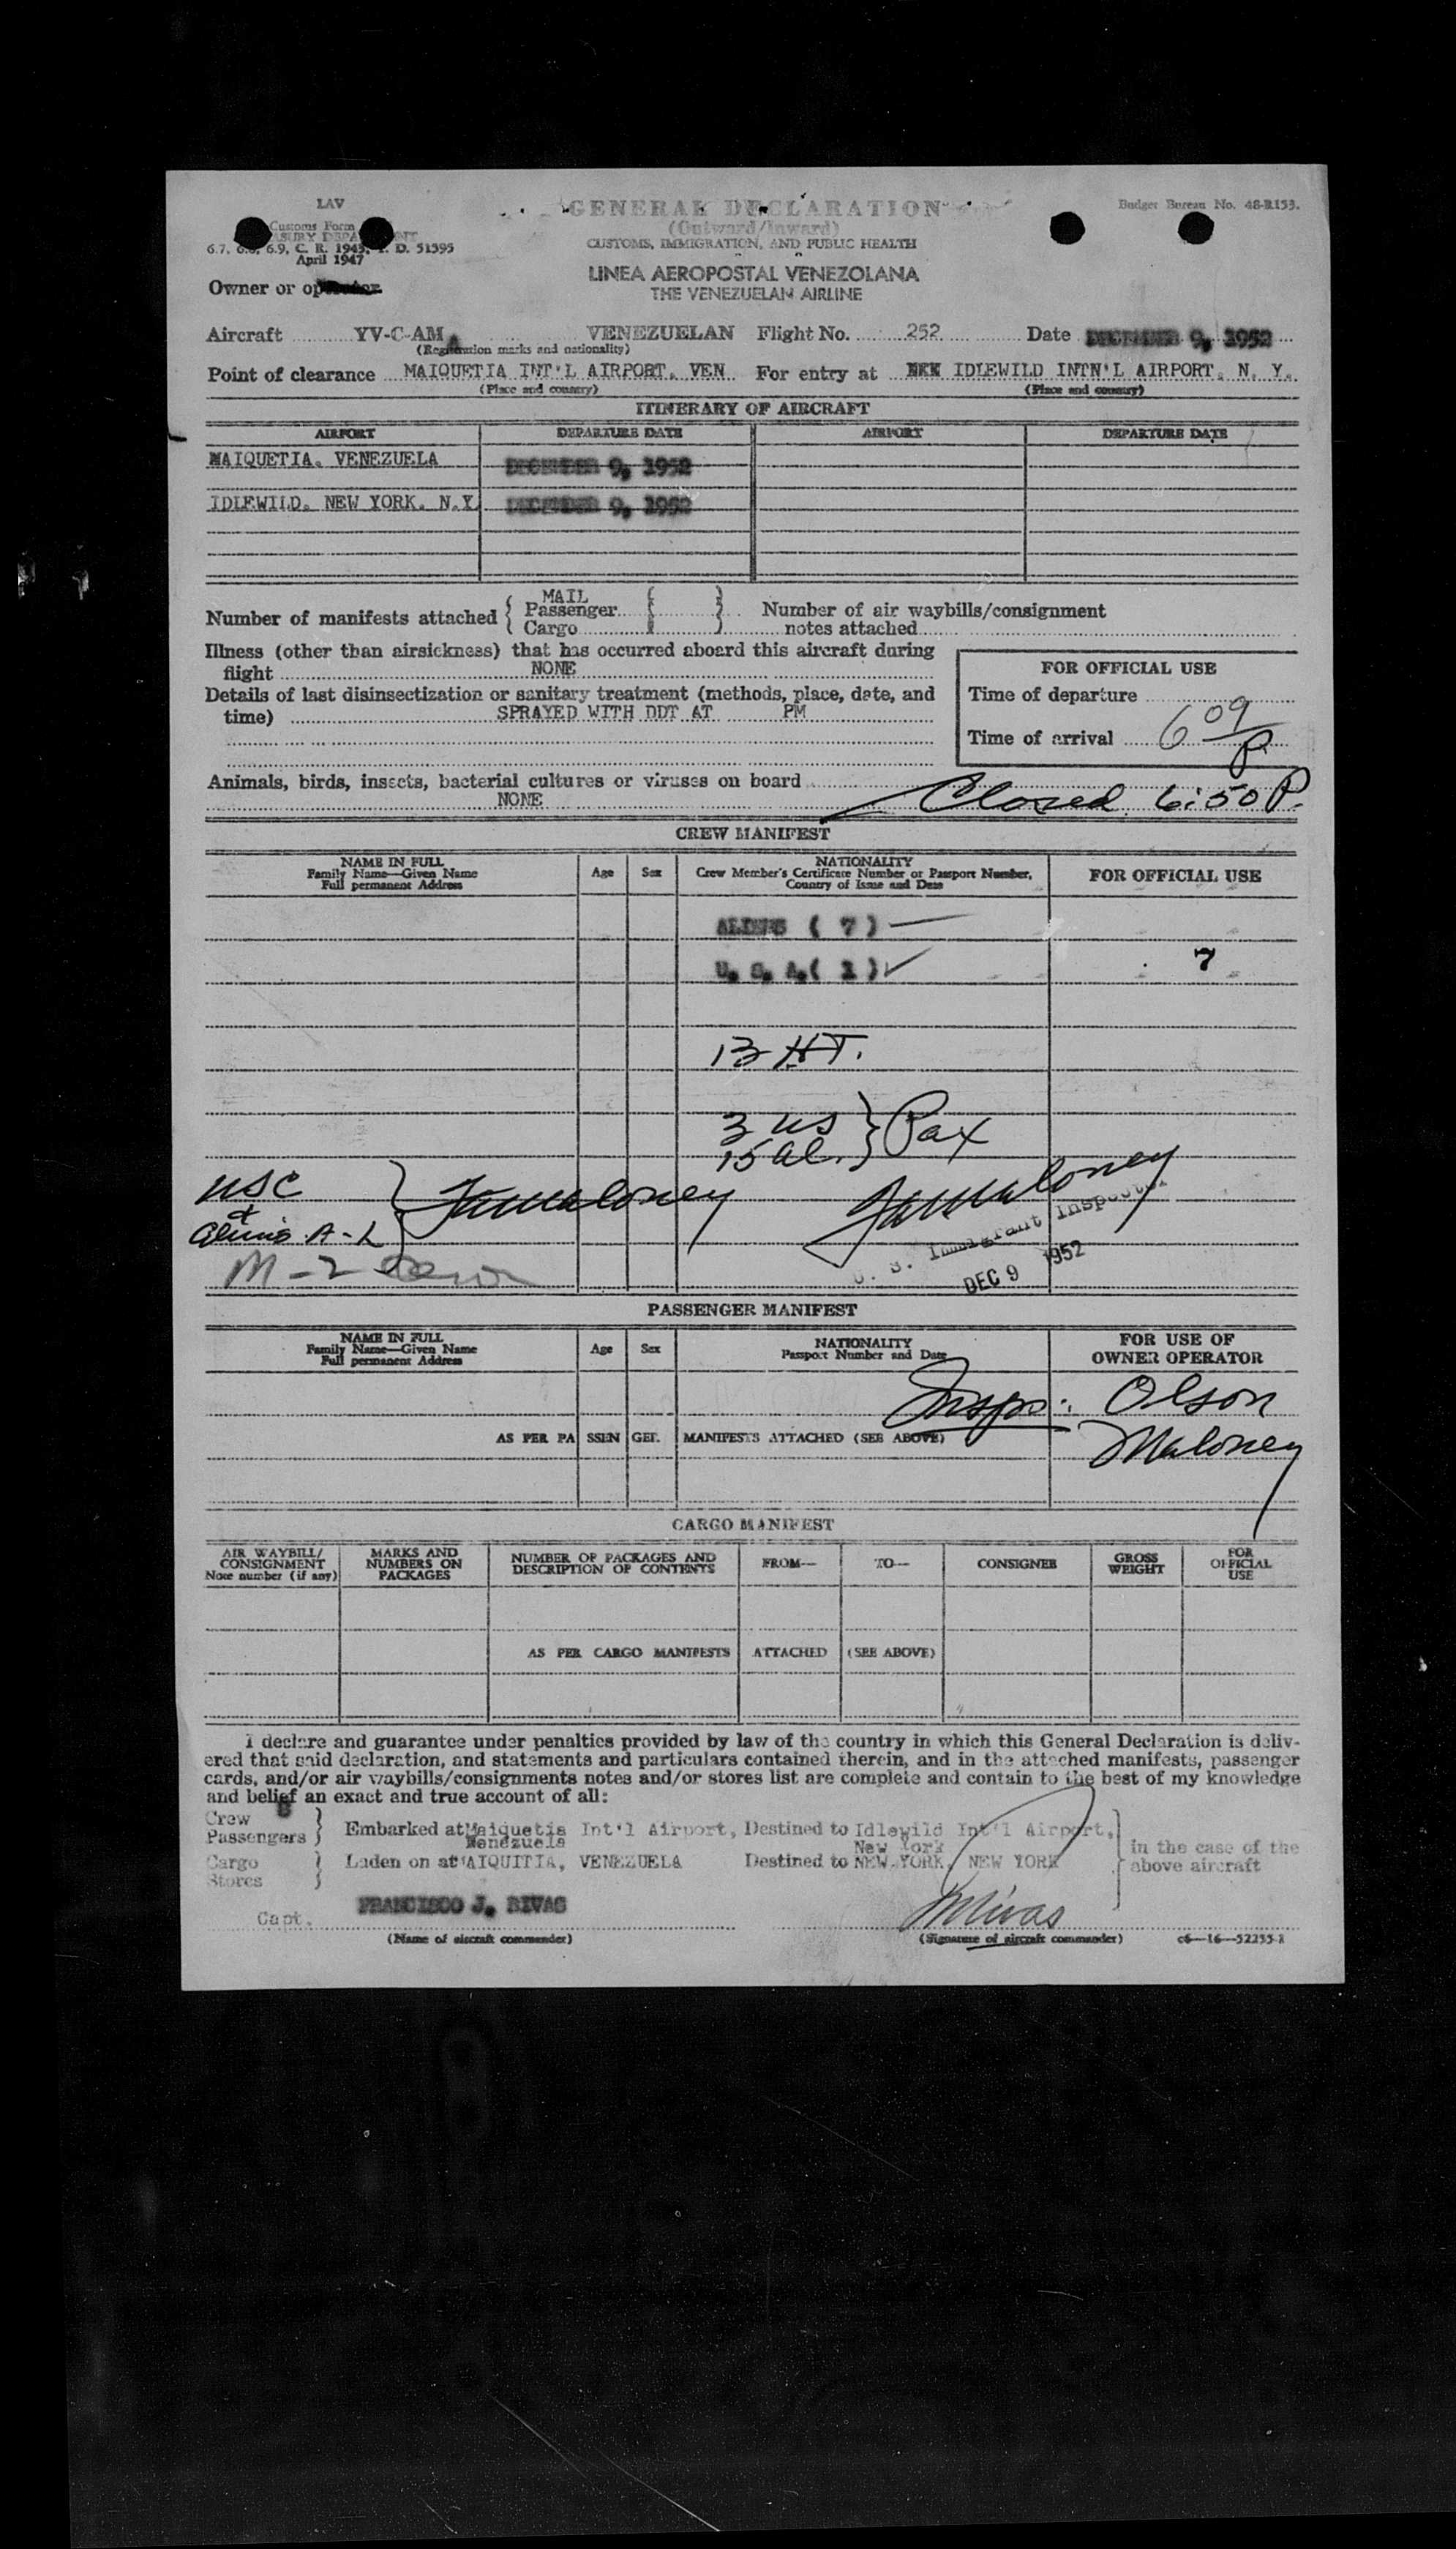 LAV
GENERAL DECLARATION
(Outward/Inward)
Budget Bureau No. 48-R153.
Customs Form
CUSTOMS, IMMIGRATION, AND PUBLIC HEALTH
6.7, 6.8, 6.9, C. R. 1943, T. D. 51395
April 1947
LINEA AEROPOSTAL VENEZOLANA
THE VENEZUELAN AIRLINE
Owner or operator
Aircraft YV-C-AMA VENEZUELAN Flight No. 252 Date DECEMBER 9, 1952
(Registration marks and nationality)
Point of clearance MAIQUETIA INT'L AIRPORT. VEN For entry at IDLEWILD INTN'L AIRPORT. N. Y.
(Place and country) (Place and country)
ITINERARY OF AIRCRAFT
AIRPORT DEPARTURE DATE AIRPORT DEPARTURE DATE
MAIQUETIA. VENEZUELA DECEMBER 9, 1952
IDLEWILD. NEW YORK. N.Y. DECEMBER 9, 1952
MAIL
Number of manifests attached { Passenger { } Number of air waybills/consignment
Cargo notes attached
Illness (other than airsickness) that has occurred aboard this aircraft during
flight NONE
FOR OFFICIAL USE
Details of last disinsectization or sanitary treatment (methods, place, date, and
time) SPRAYED WITH DDT AT PM
Time of departure
Time of arrival 6 09/P.
Animals, birds, insects, bacterial cultures or viruses on board
NONE
Closed 6:50 P.
CREW MANIFEST
NAME IN FULL
Family Name—Given Name
Full permanent Address
Age Sex
NATIONALITY
Crew Member's Certificate Number or Passport Number,
Country of Issue and Date
FOR OFFICIAL USE
ALIENS ( 7 )
U. S. A.( 1 )
7
13 HT.
3 US } Pax
15 al.
USC
&
Aliens A-L
Maloney
Maloney
M-2
U. S. Immigrant Inspector
DEC 9 1952
PASSENGER MANIFEST
NAME IN FULL
Family Name—Given Name
Full permanent Address
Age Sex
NATIONALITY
Passport Number and Date
FOR USE OF
OWNER OPERATOR
Insps: Olson
Maloney
AS PER PASSENGER MANIFESTS ATTACHED (SEE ABOVE)
CARGO MANIFEST
AIR WAYBILL/
CONSIGNMENT
Note number (if any)
MARKS AND
NUMBERS ON
PACKAGES
NUMBER OF PACKAGES AND
DESCRIPTION OF CONTENTS
FROM—
TO—
CONSIGNEE
GROSS
WEIGHT
FOR
OFFICIAL
USE
AS PER CARGO MANIFESTS ATTACHED (SEE ABOVE)
I declare and guarantee under penalties provided by law of the country in which this General Declaration is deliv-
ered that said declaration, and statements and particulars contained therein, and in the attached manifests, passenger
cards, and/or air waybills/consignments notes and/or stores list are complete and contain to the best of my knowledge
and belief an exact and true account of all:
8
Crew
Passengers } Embarked at Maiquetia Int'l Airport, Destined to Idlewild Int'l Airport,
Venezuela New York
in the case of the
above aircraft
Cargo
Stores } Laden on at MAIQUITIA, VENEZUELA Destined to NEW YORK, NEW YORK
Capt. FRANCISCO J. RIVAS
(Name of aircraft commander) (Signature of aircraft commander) c6—16—52255-1